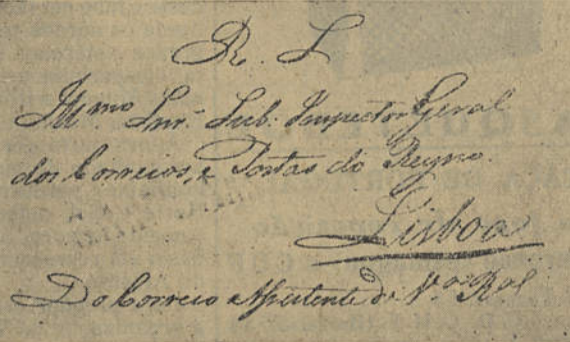 R. L
Illmo Snr. Sub. Inspector Geral
dos Correios, e Postas do Reyno.
Lisboa
Do Correio Assistente de Va Ral